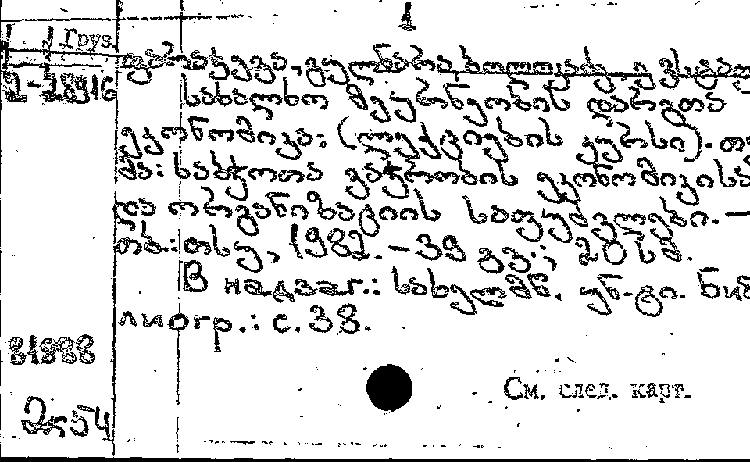 1
Груз.
2-28916
სახალხო მეურნეობის დარგთა
ეკონომიკა: (ლექციების კურსი). თე
მა: საბჭოთა ვაჭრობის ეკონომიკისა
და ორგანიზაციის საფუძვლები. —
თბ.: თსუ, 1982. – 39 გვ.; 20 სმ.
В надзаг.: სახელმწ. უნ-ტი. Биб
лиогр.: с. 38.
81988
См. след. карт.
2к54